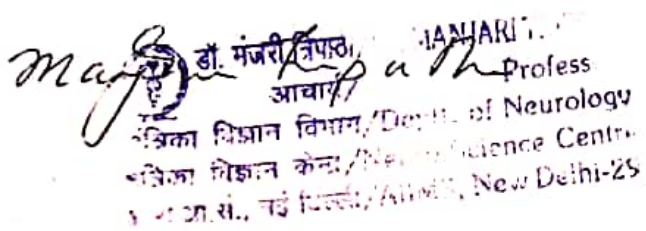 Manjari Tripathi
डॉ. मंजरी त्रिपाठी, MANJARI
आचार्य Profess
विज्ञान विभाग/Deptt. of Neurology
विज्ञान केन्द्र/ Science Centre
नई दिल्ली/AIIMS, New Delhi-29